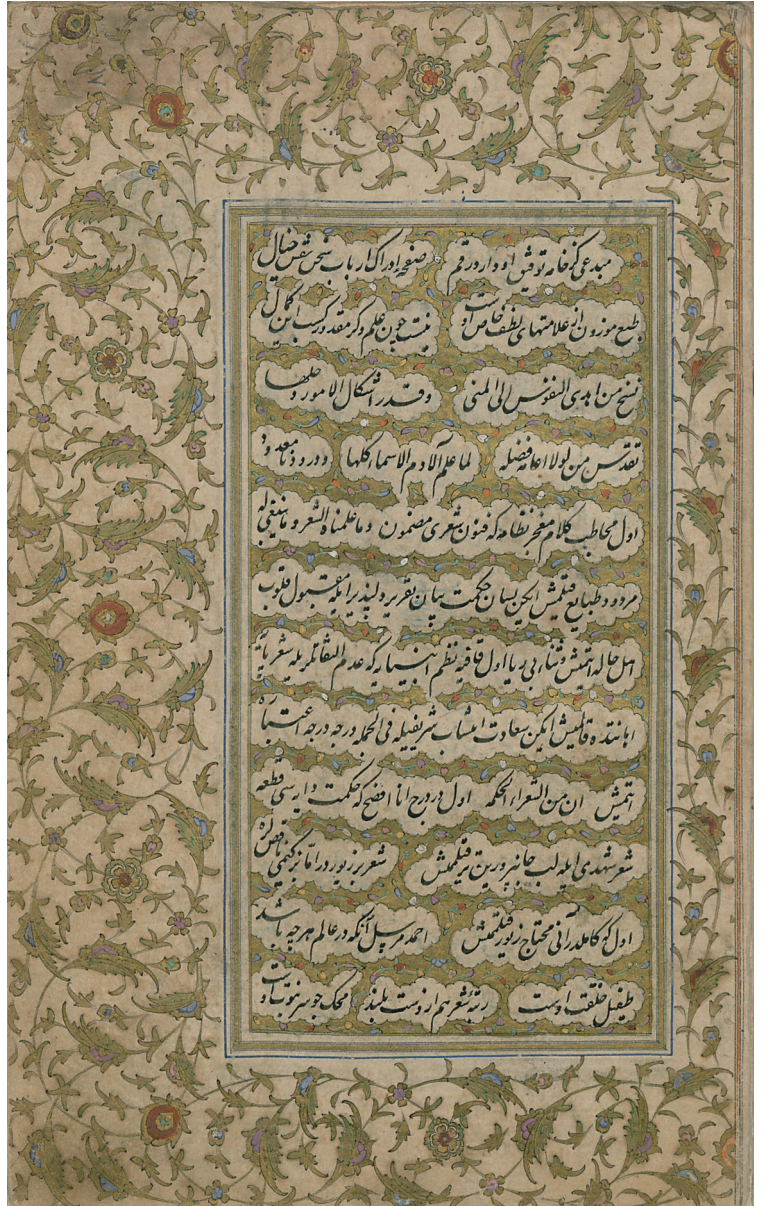 مبدعی کز خامه توفیق او دارد رقم صفحهٔ ادراک ارباب سخن نقش خیال
طبع موزون از علامتهای لطف خاص اوست نیست چون علم دگر مقدور کسب این کمال
من اهدی النفوس الی المنی وقدر اشکال الامور وحلها
تقدس من لولا افضله لما علم آلادم الاسماء کلها و درود نامعدود
اول مخاطب کلام معجز نظامه که فنون شعری مضمون وما علمناه الشعر وما ینبغی له
مردود طبایع قیلمش ایکن لسان حکمت بیان تقریر دلپذیر ایله مقبول قلوب
اهل حاله ایتمیش و ثناء بی ریا اول قافیه نظم انبیایه که عدم التفاتلریله شعر پایه
اهانتده قالمیش ایکن سعادت انتساب شریفیله فی الجمله درجه درجه اعتباره
ایتمیش ان من الشعراء لحکمه اول در درج انا افصح که حکمت دایه سی قطعه
شعر شهدی ایله لب جانپرورین تر قیلمش شعر بر زیور در اما نیر کیمی ناقص لره
اول که کاملدر آنی محتاج زیور قیلمش احمد مرسل آنکه در عالم هرچه باشد
طفیل خلقت اوست رتبهٔ شعر هم ازوست بلند محک جوهر نبوت اوست